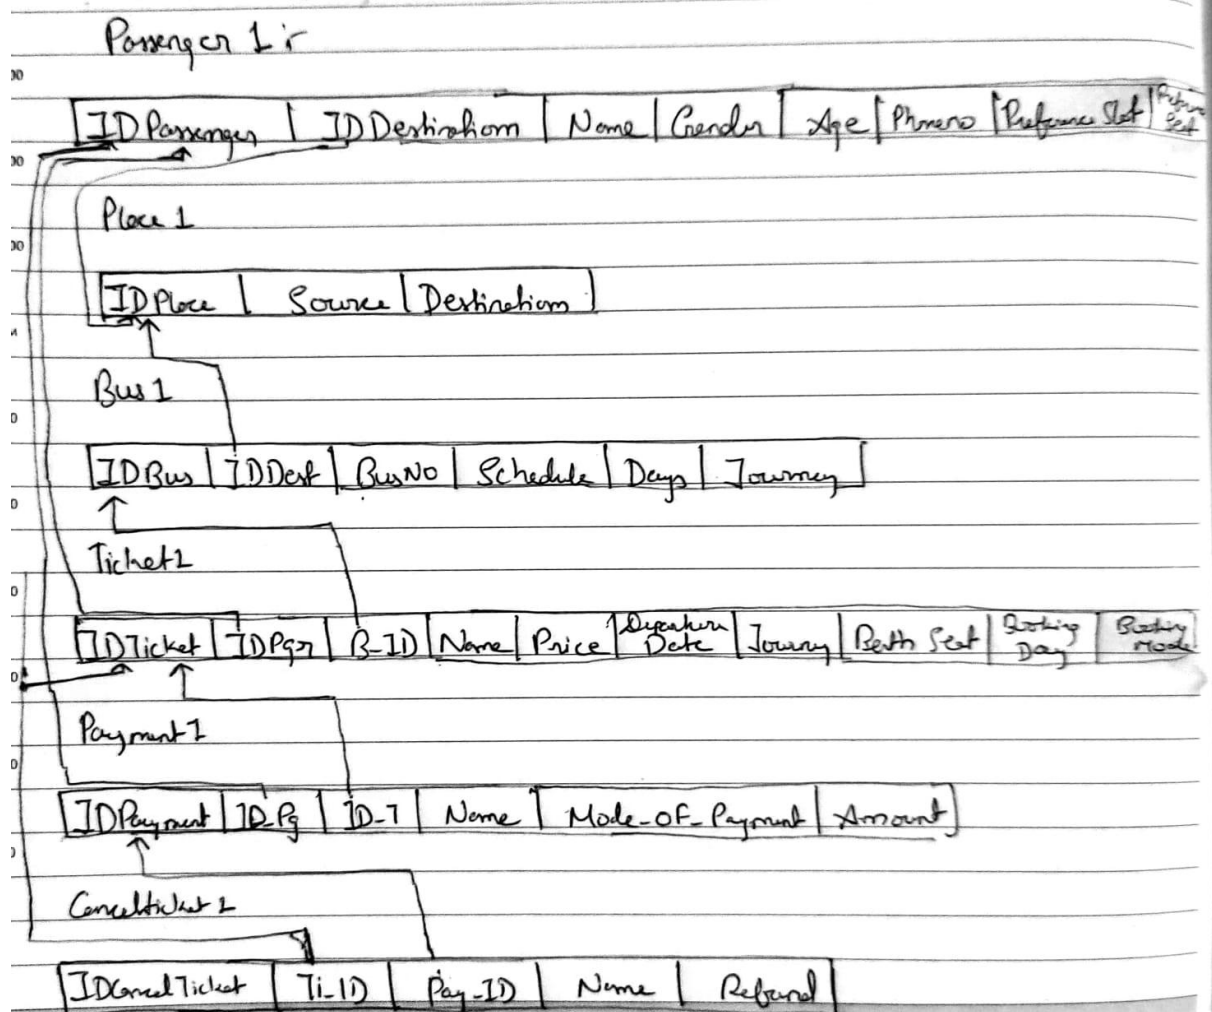 Passenger 1 :-
IDPassenger | IDDestination | Name | Gender | Age | Phoneno | Preference Slot | Preference Seat
Place 1
IDPlace | Source | Destination
Bus 1
IDBus | IDDest | BusNo | Schedule | Days | Journey
Ticket 1
IDTicket | IDPgr | B_ID | Name | Price | Departure Date | Journy | Berth Seat | Booking Day | Booking Mode
Payment 1
IDPayment | ID_Pg | ID_T | Name | Mode_OF_Payment | Amount
Cancelticket 1
IDCancelTicket | Ti_ID | Pay_ID | Name | Refund